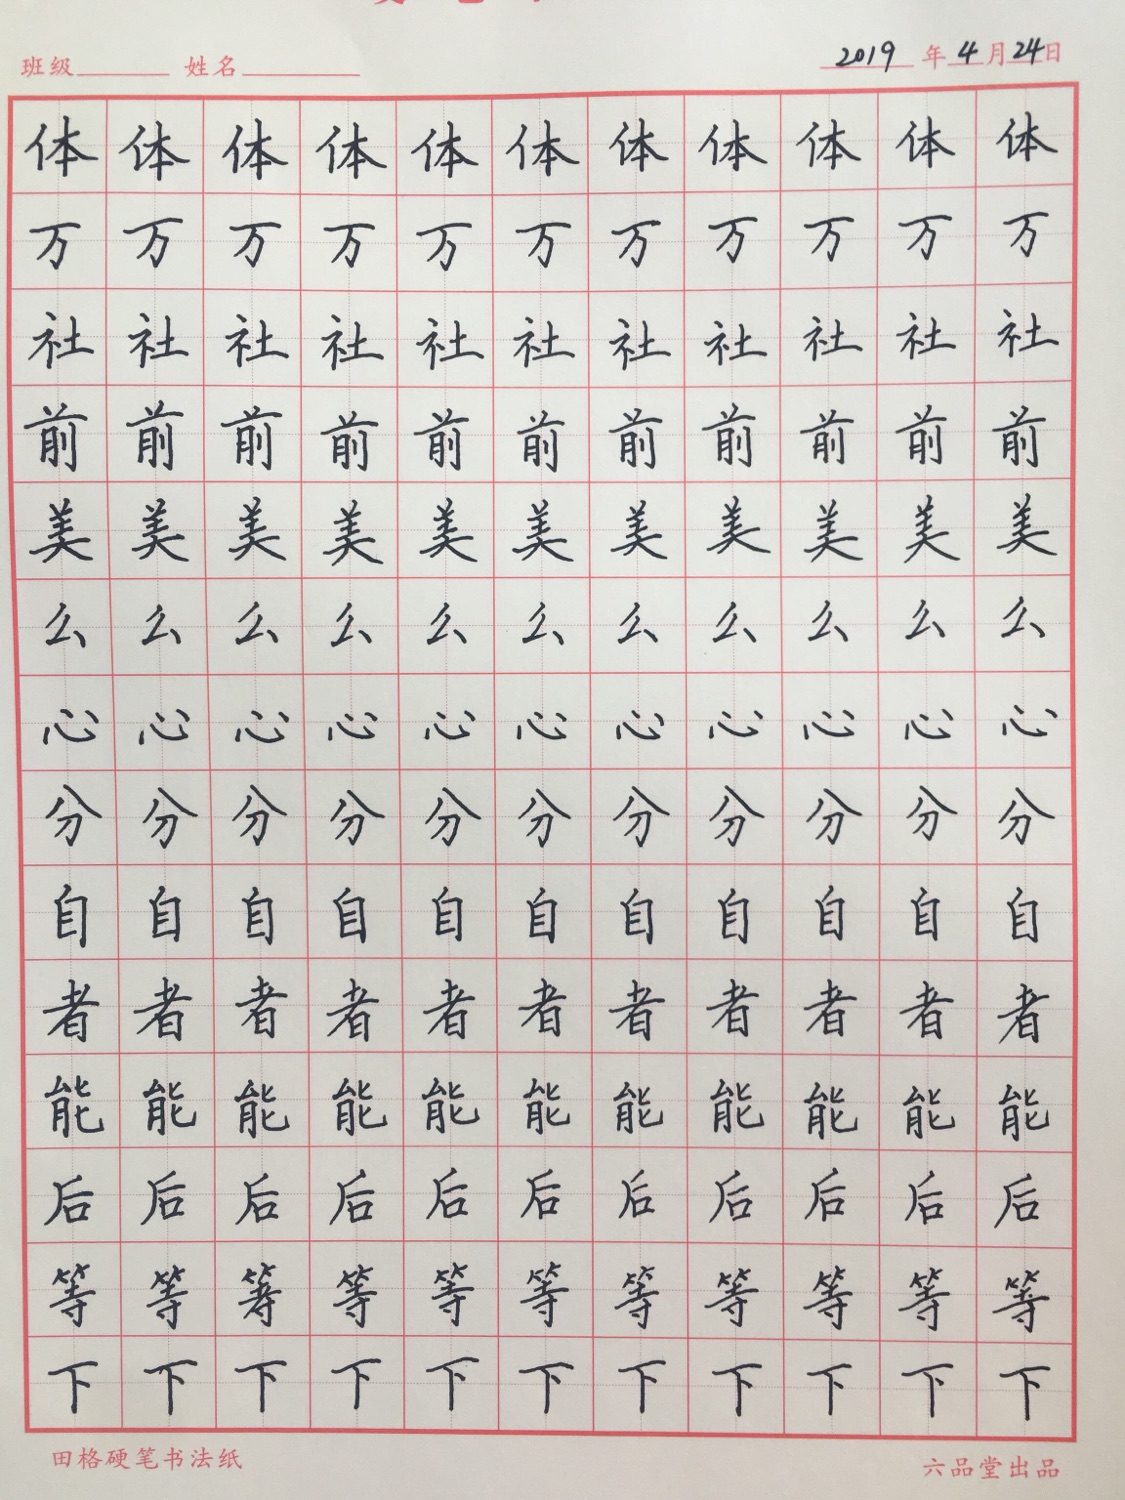 班级 姓名 2019年4月24日
体体体体体体体体体体体
万万万万万万万万万万万
社社社社社社社社社社社
前前前前前前前前前前前
美美美美美美美美美美美
么么么么么么么么么么么
心心心心心心心心心心心
分分分分分分分分分分分
自自自自自自自自自自自
者者者者者者者者者者者
能能能能能能能能能能能
后后后后后后后后后后后
等等等等等等等等等等等
下下下下下下下下下下下
田格硬笔书法纸 六品堂出品